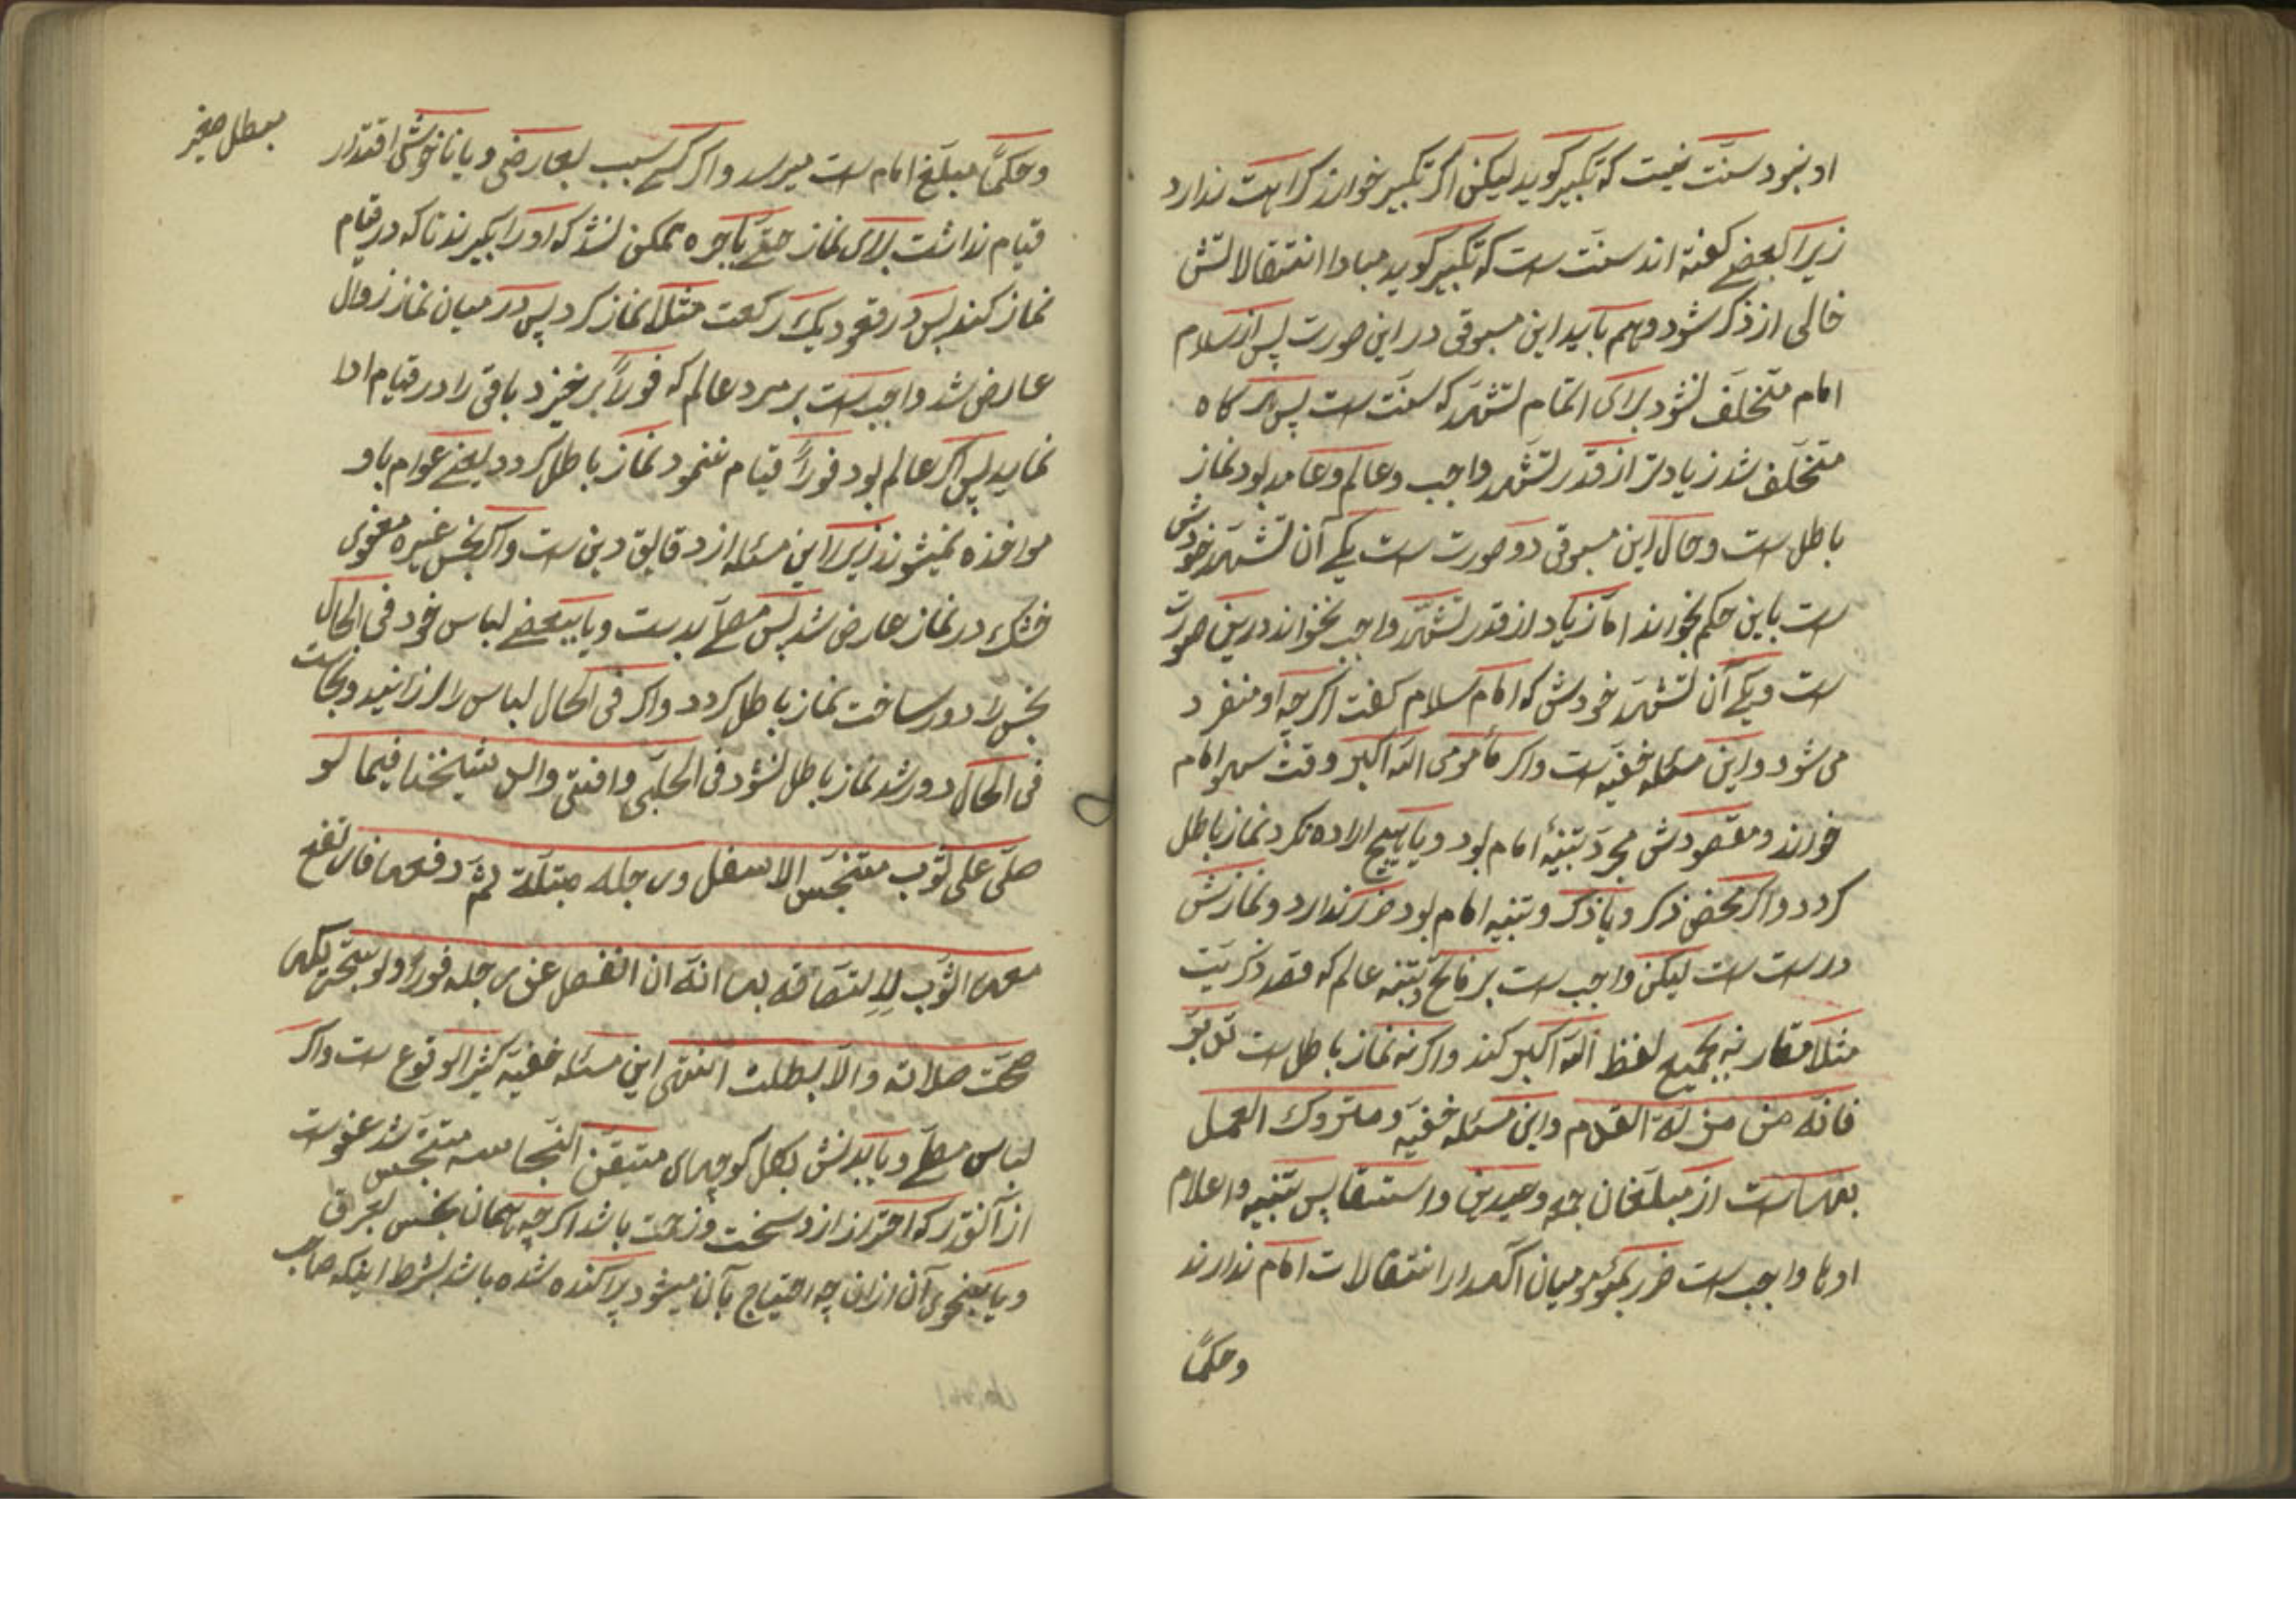 او نبود سنّت نیست که تکبیر کوید لیکن اکر تکبیر خواند کراهت ندارد
زیرا بعضے کفته اند سنّت است که تکبیر کوید مبادا انتقالاتش
خالی از ذکر شود و هم باید این مسبوقی در این صورت پس از سلام
امام متخلّف نشود برای اتمام تشهّد که سنّت است پس هر کاه
متخلّف شد زیادتر از قدر تشهّد واجب و عالم و عامد بود نماز
باطل است و حال این مسبوقی دو صورت است یکے آن تشهّد خودش
است باین حکم بخواند اما زیاد از قدر تشهّد واجب نخواند درین صورت
است و یکے آن تشهّد خودش که امام سلام کفت اکر چه او منفرد
می شود و این مسئله خفیّه است واکر مأمومی الله اکبر وقت سهو امام
خواند و مقصودش مجرّد تنبیه امام بود و یا هیچ اراده نکرد نماز باطل
کردد واکر محض ذکر و یا ذکر و تنبیه امام بود ضرر ندارد و نمازش
درست است لیکن واجب است بر فاتح و تنبیه عالم که قصد ذکریت
مثلا مقارنه بجمیع لفظ الله اکبر کند واکرنه نماز باطل است
فانّه من مزلّة القدم و این مسئله خفیّه و متروک العمل
بعد است از مبلّغان جمعه و عیدین و استسقا پس تنبیه و اعلام
اوها واجب است ضرر بمؤمومیان آکهدار انتقالات امام ندارند
وحکمًا
وحکمًا مبلّغ امام است میرسد واکر کسے سبب بعارضی و یا ناخوشی اقتدار
قیام نداشت برای نماز حتّے باجره ممکن نشد که او را بکیرند تا که در قیام
نماز کند پس در قعود یک رکعت مثلا نماز کرد پس در میان نماز زوال
عارض شد واجب است بر مرد عالم که فورًا بر خیزد باقی را در قیام ادا
نماید پس اکر عالم بود فورًا قیام ننمود نماز باطل کردد یعنے عوام باو
مواخذه نمیشوند زیرا این مسئله از دقایق دین است واکر نجس غیره معفوی
خشک در نماز عارض شد پس مصلّے بدست و یا ببعضے لباس خود فی الحال
نجس را دور ساخت نماز باطل کردد واکر فی الحال لباس را لرزانید و نجاست
فی الحال دور شد نماز باطل نشود فی الحلبی وافتی والد شیخنا فیما لو
صلّی علی ثوب متنجّس الاسفل ورجله مبتلّة ثمّ رفعها فارتفع
معها الثوب لالتصاقه بها انّه ان انفصل عن رجله فورًا ولو بتحریکها
صحّت صلاته والّا بطلت انتهی این مسئله خفیّه کثیر الوقوع است واکر
لباس مصلّے و یا بدنش بکل کوچهای متیقّن النّجاسه متنجّس شد عفو است
از آنقدر که احتراز از و سخت و زحمت باشد اکر چه همان نجس بعرق
و یا بنحوی آن ازان چه احتیاج بآن میشود پراکنده شده باشد بشرط اینکه صاحب